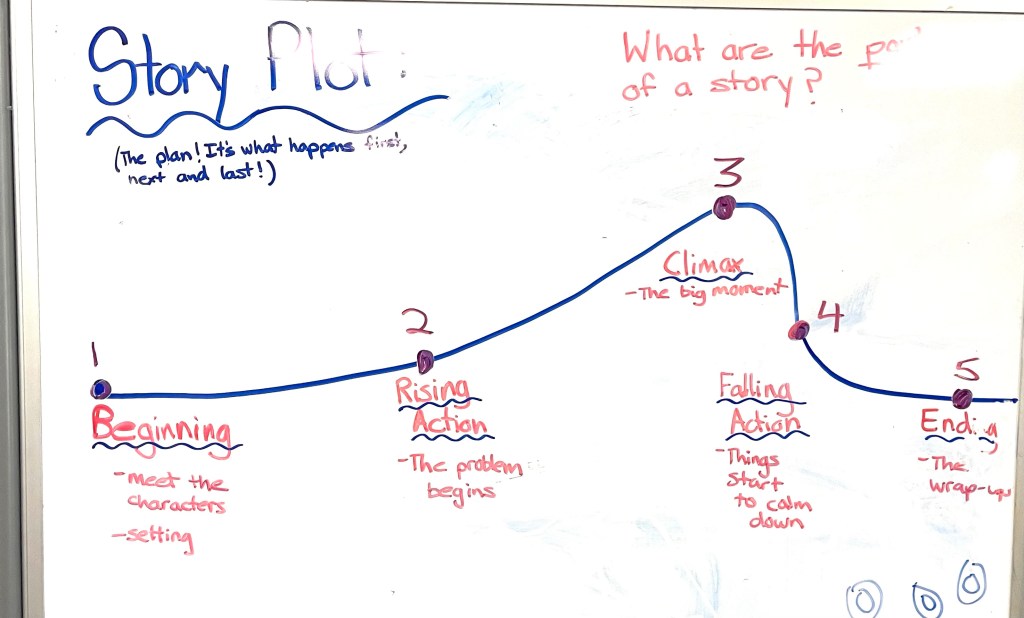 Story Plot:
What are the
of a story?
(The plan! It's what happens first,
next and last!)
3
Climax
-The big moment
4
2
1
5
Beginning
-meet the
characters
-setting
Rising
Action
-The problem
begins
Falling
Action
-Things
start
to calm
down
-The
wrap-up